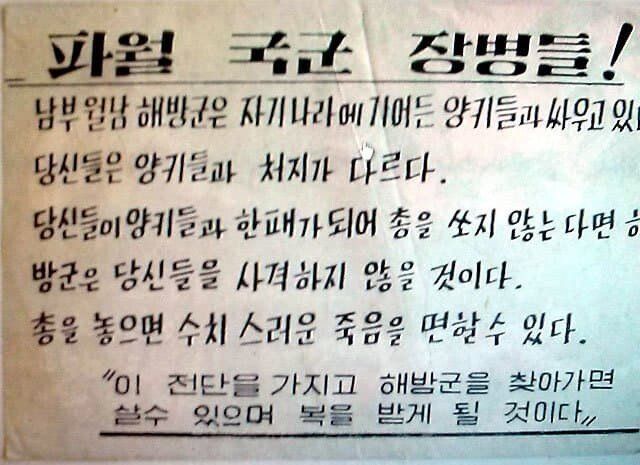 파월 국군 장병들!
남부월남 해방군은 자기나라에 기어든 양키들과 싸우고
당신들은 양귀들과 처지가 다르다.
당신들이 양귀들과 한패가 되어 총을 쏘지 않는 다면
방군은 당신들을 사격하지 않을 것이다.
총을 놓으면 수치 스러운 죽음을 면할수 있다.
"이 전단을 가지고 해방군을 찾아가면
살수 있으며 복을 받게 될 것이다"